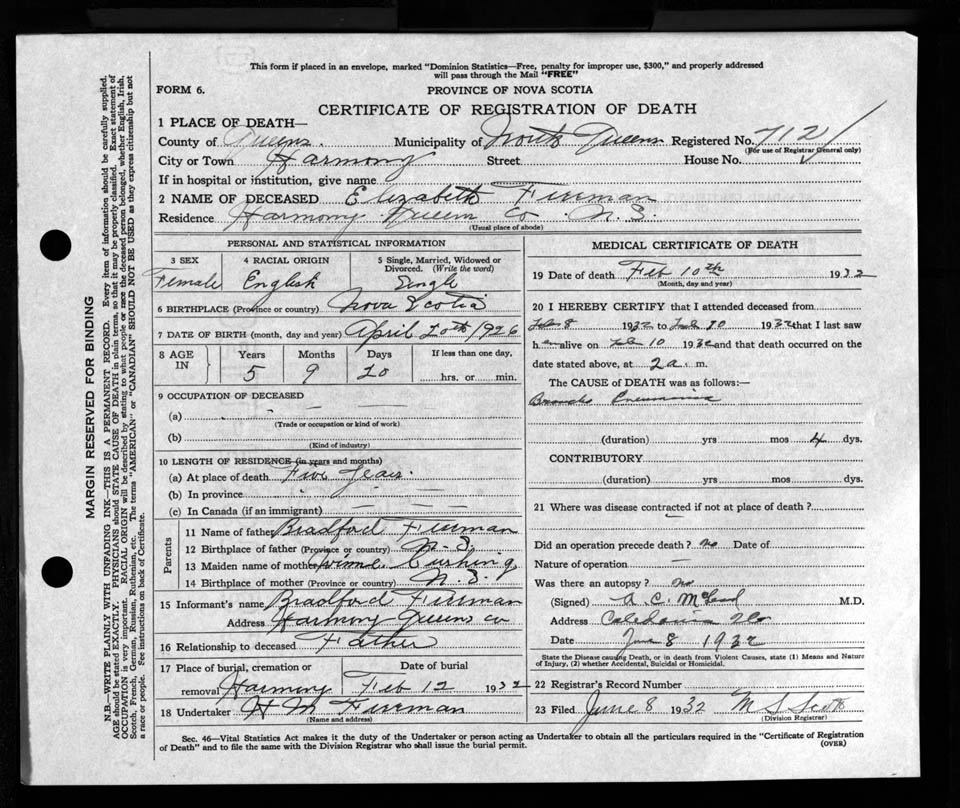 This form if placed in an envelope, marked "Dominion Statistics—Free, penalty for improper use, $300," and properly addressed
will pass through the Mail "FREE"
FORM 6.
PROVINCE OF NOVA SCOTIA
CERTIFICATE OF REGISTRATION OF DEATH
1 PLACE OF DEATH—
County of Queens Municipality of North Queens Registered No. 712
(For use of Registrar General only)
City or Town Harmony Street House No.
If in hospital or institution, give name
2 NAME OF DECEASED Elizabeth Freeman
Residence Harmony Queens Co. N.S.
(Usual place of abode)
PERSONAL AND STATISTICAL INFORMATION
3 SEX Female
4 RACIAL ORIGIN English
5 Single, Married, Widowed or
Divorced. (Write the word)
Single
6 BIRTHPLACE (Province or country) Nova Scotia
7 DATE OF BIRTH (month, day and year) April 20th 1926
8 AGE IN
Years Months Days If less than one day,
5 9 20 hrs. or min.
9 OCCUPATION OF DECEASED
(a)
(Trade or occupation or kind of work)
(b)
(Kind of industry)
10 LENGTH OF RESIDENCE (in years and months)
(a) At place of death Five Years
(b) In province
(c) In Canada (if an immigrant)
Parents
11 Name of father Bradford Freeman
12 Birthplace of father (Province or country) N.S.
13 Maiden name of mother Cushing
14 Birthplace of mother (Province or country) N.S.
15 Informant's name Bradford Freeman
Address Harmony Queens Co
16 Relationship to deceased Father
17 Place of burial, cremation or Date of burial
removal Harmony Feb 12 1932
18 Undertaker H M Freeman
(Name and address)
MEDICAL CERTIFICATE OF DEATH
19 Date of death Feb 10th 1932
(Month, day and year)
20 I HEREBY CERTIFY that I attended deceased from
Feb 8 1932 to Feb 10 1932 that I last saw
h er alive on Feb 10 1932 and that death occurred on the
date stated above, at 2 a. m.
The CAUSE of DEATH was as follows:—
Broncho Pneumonia
(duration) yrs mos 4 dys.
CONTRIBUTORY
(duration) yrs mos dys.
21 Where was disease contracted if not at place of death?
Did an operation precede death? no Date of
Nature of operation —
Was there an autopsy? no
(Signed) A. C. McLeod M.D.
Address Caledonia
Date June 8 1932
State the Disease causing Death, or in death from Violent Causes, state (1) Means and Nature
of Injury, (2) whether Accidental, Suicidal or Homicidal.
22 Registrar's Record Number
23 Filed June 8 1932 M S Scott
(Division Registrar)
Sec. 46—Vital Statistics Act makes it the duty of the Undertaker or person acting as Undertaker to obtain all the particulars required in the "Certificate of Registration
of Death" and to file the same with the Division Registrar who shall issue the burial permit.
(OVER)
MARGIN RESERVED FOR BINDING
N.B.—WRITE PLAINLY WITH UNFADING INK—THIS IS A PERMANENT RECORD. Every item of information should be carefully supplied.
AGE should be stated EXACTLY. PHYSICIANS should STATE CAUSE OF DEATH in plain terms, so that it may be properly classified. Exact statement of
OCCUPATION is very important. RACIAL ORIGIN will be described by stating to what people or race the deceased person belonged, whether English, Irish,
Scotch, French, German, Russian, Ruthenian, etc. The terms "AMERICAN" or "CANADIAN" SHOULD NOT BE USED as they express citizenship but not
a race or people. See instructions on back of Certificate.